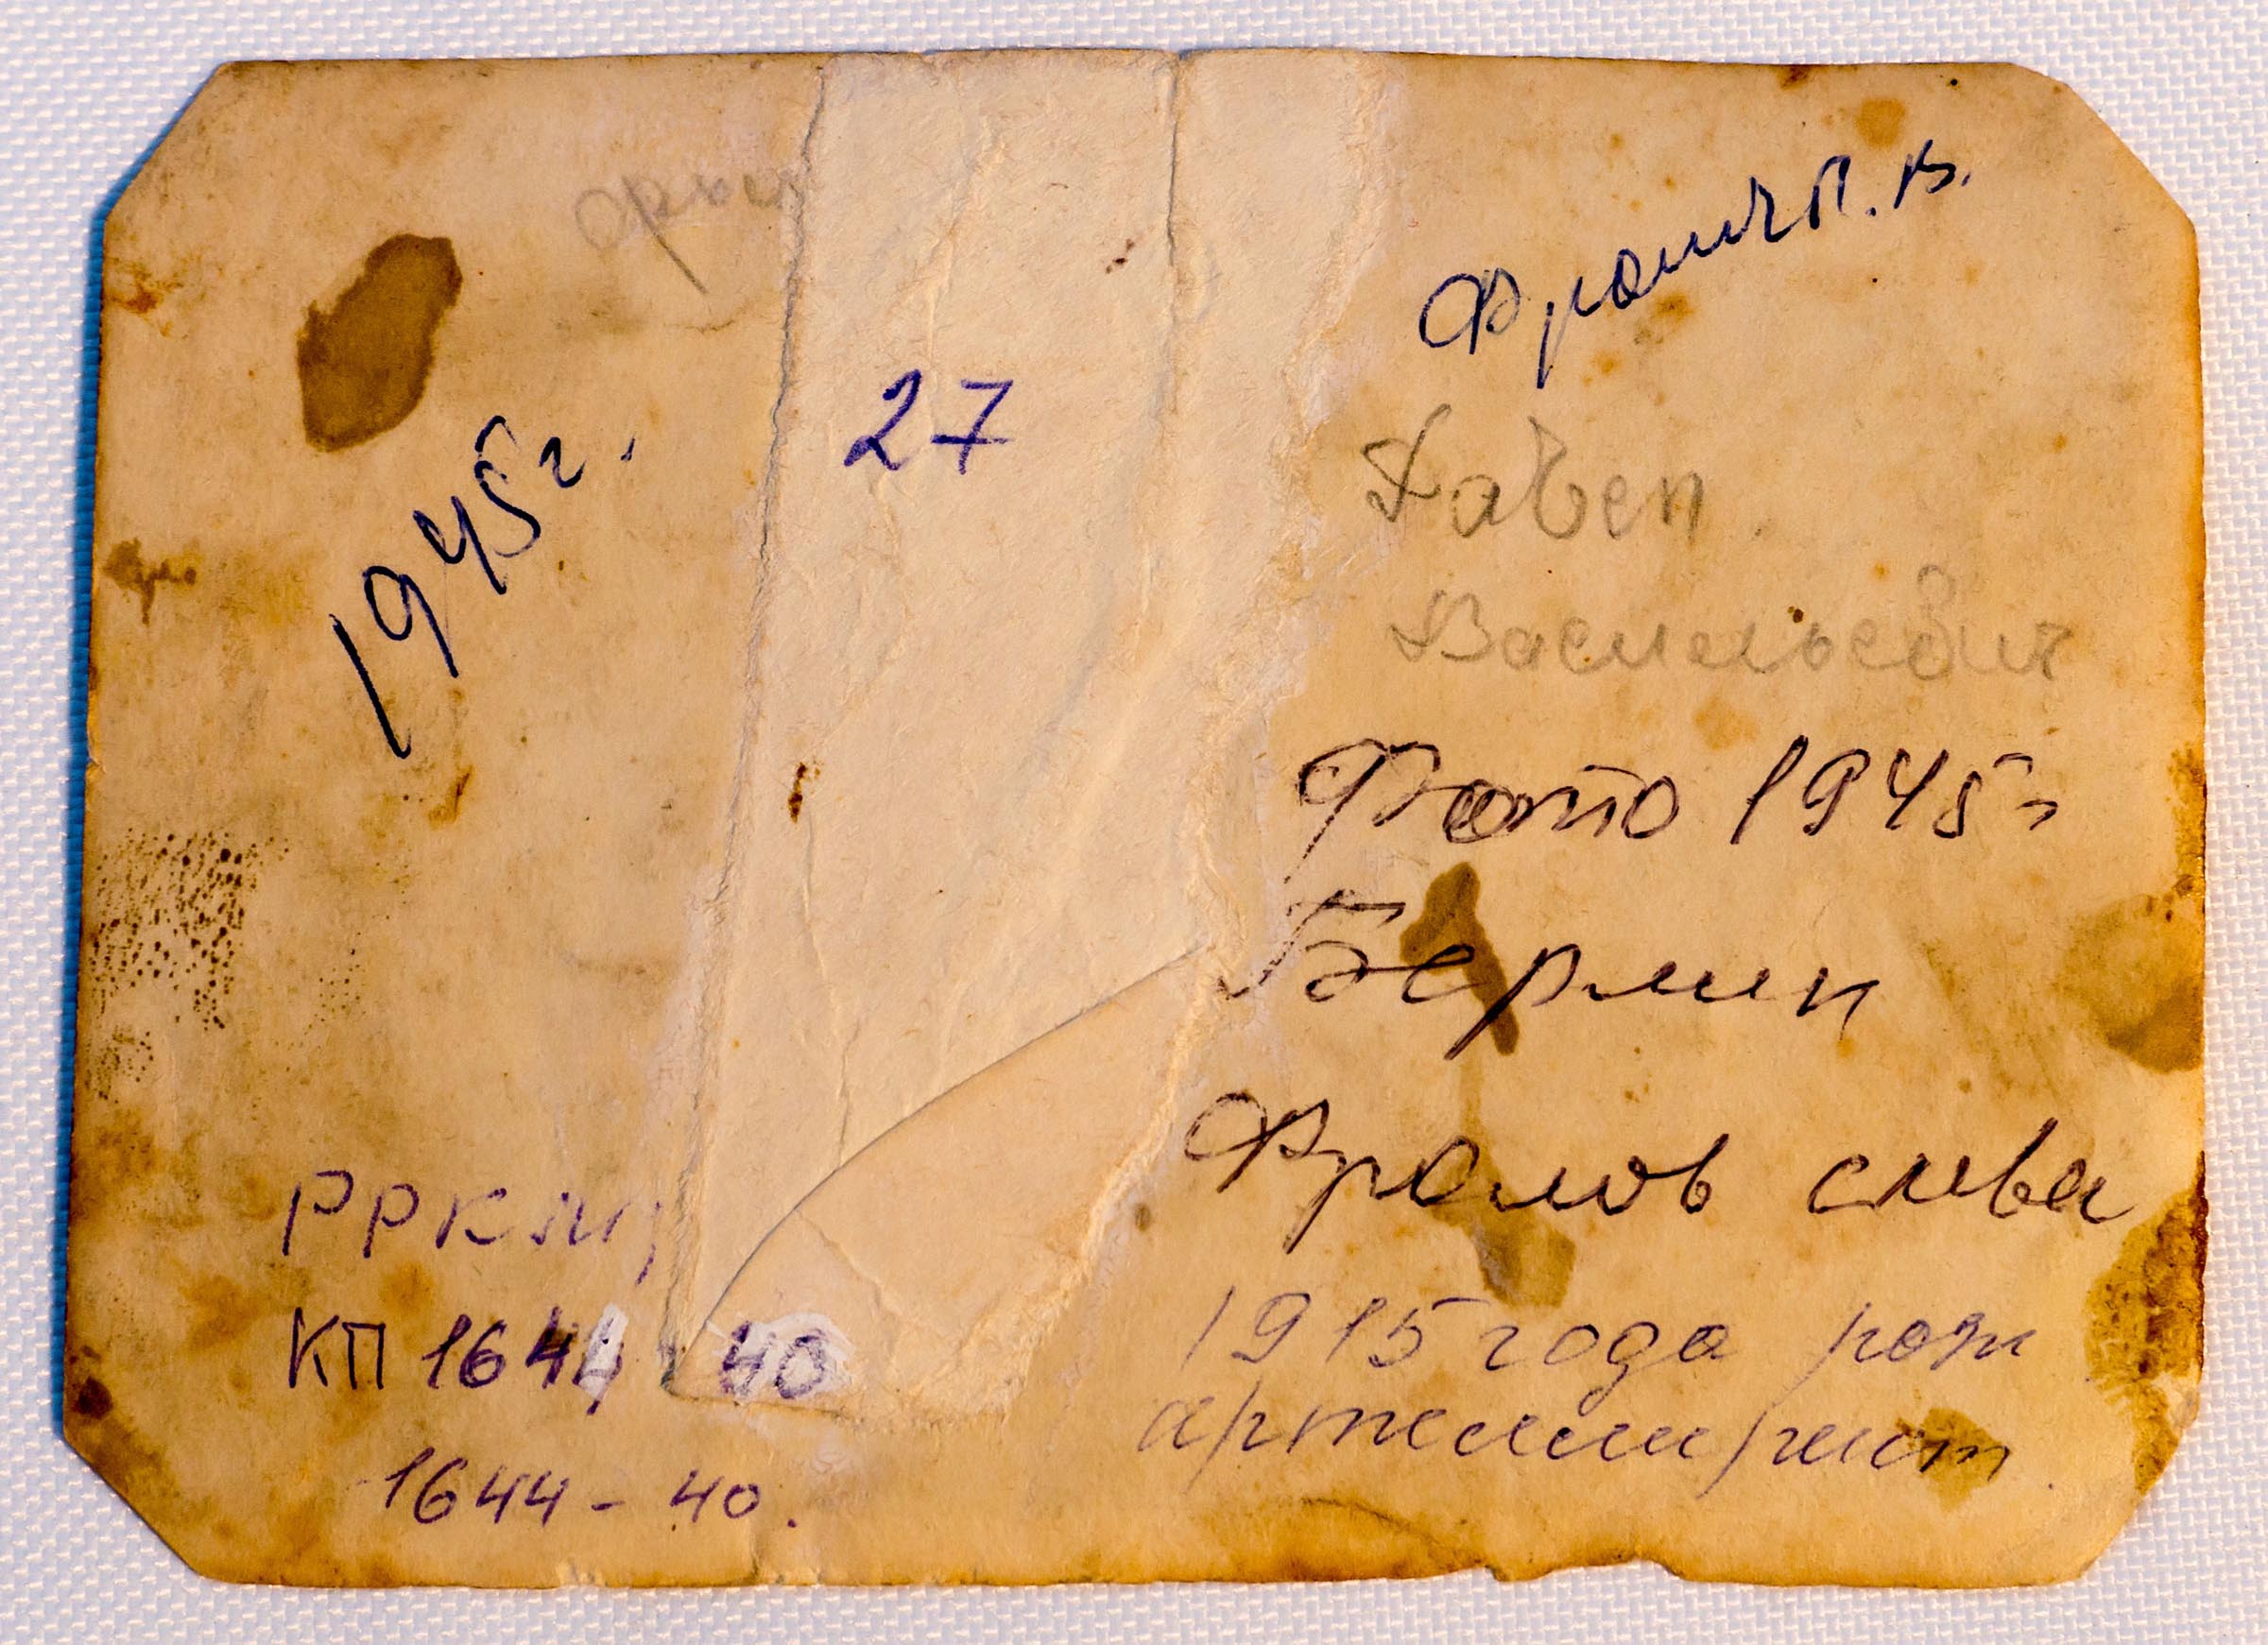 1945г.
27
РРКМ
КП 1644 40
1644 - 40.
П. В.
Павел
Васильевич
Фото 1945г
Берлин
Фролов слева
1915 года рож
артиллерист